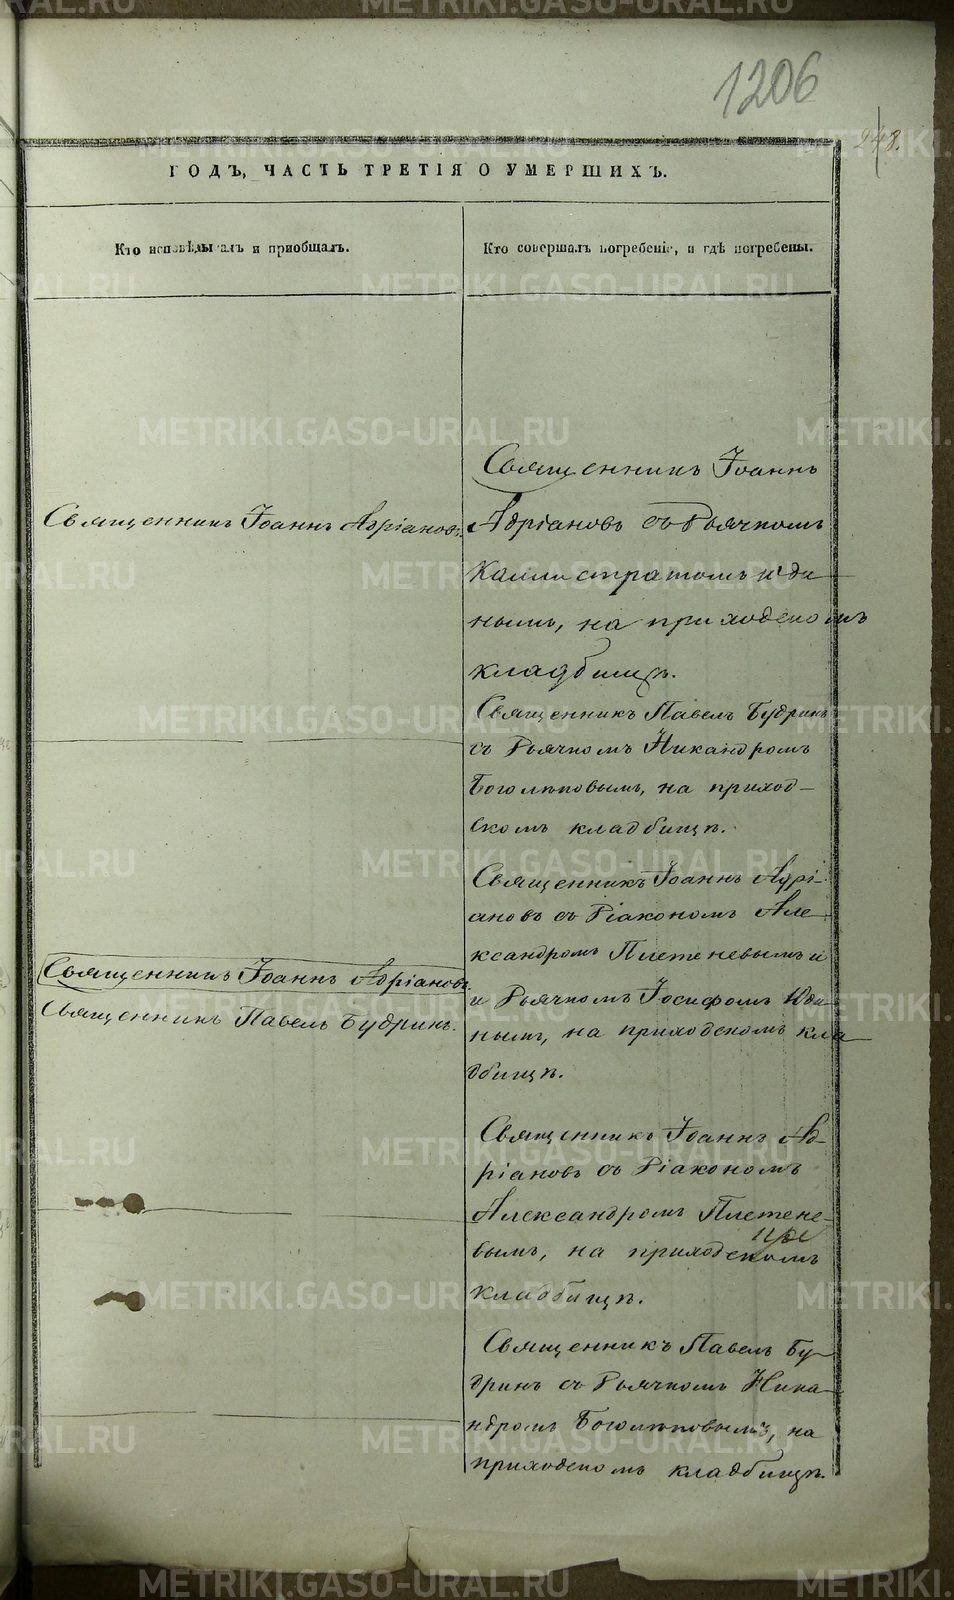 1206
248.
ГОДЪ, ЧАСТЬ ТРЕТІЯ О УМЕРШИХЪ.
Кто исповѣдывалъ и пріобщалъ.
Кто совершалъ погребеніе, и гдѣ погребены.
Священникъ Іоаннъ Адріановъ.
Священникъ Іоаннъ
Адріановъ съ Дьячкомъ
Каллистратомъ Юди
нымъ, на приходскомъ
кладбищѣ.
Священникъ Павелъ Будринъ
съ Дьячкомъ Никандромъ
Боголѣповымъ, на приход-
скомъ кладбищѣ.
Священникъ Іоаннъ Адріановъ.
Священникъ Павелъ Будринъ.
Священникъ Іоаннъ Адрі-
ановъ съ Діакономъ Але
ксандромъ Плетеневымъ и
и Дьячкомъ Іосифомъ Юди
нымъ, на приходскомъ кла
дбищѣ.
Священникъ Іоаннъ Ад-
ріановъ съ Діакономъ
Александромъ Плетене-
вымъ, на приходскомъ
кладбищѣ.
Священникъ Павелъ Бу-
дринъ съ Дьячкомъ Ника-
ндромъ Боголѣповымъ, на
приходскомъ кладбищѣ.
METRIKI.GASO-URAL.RU